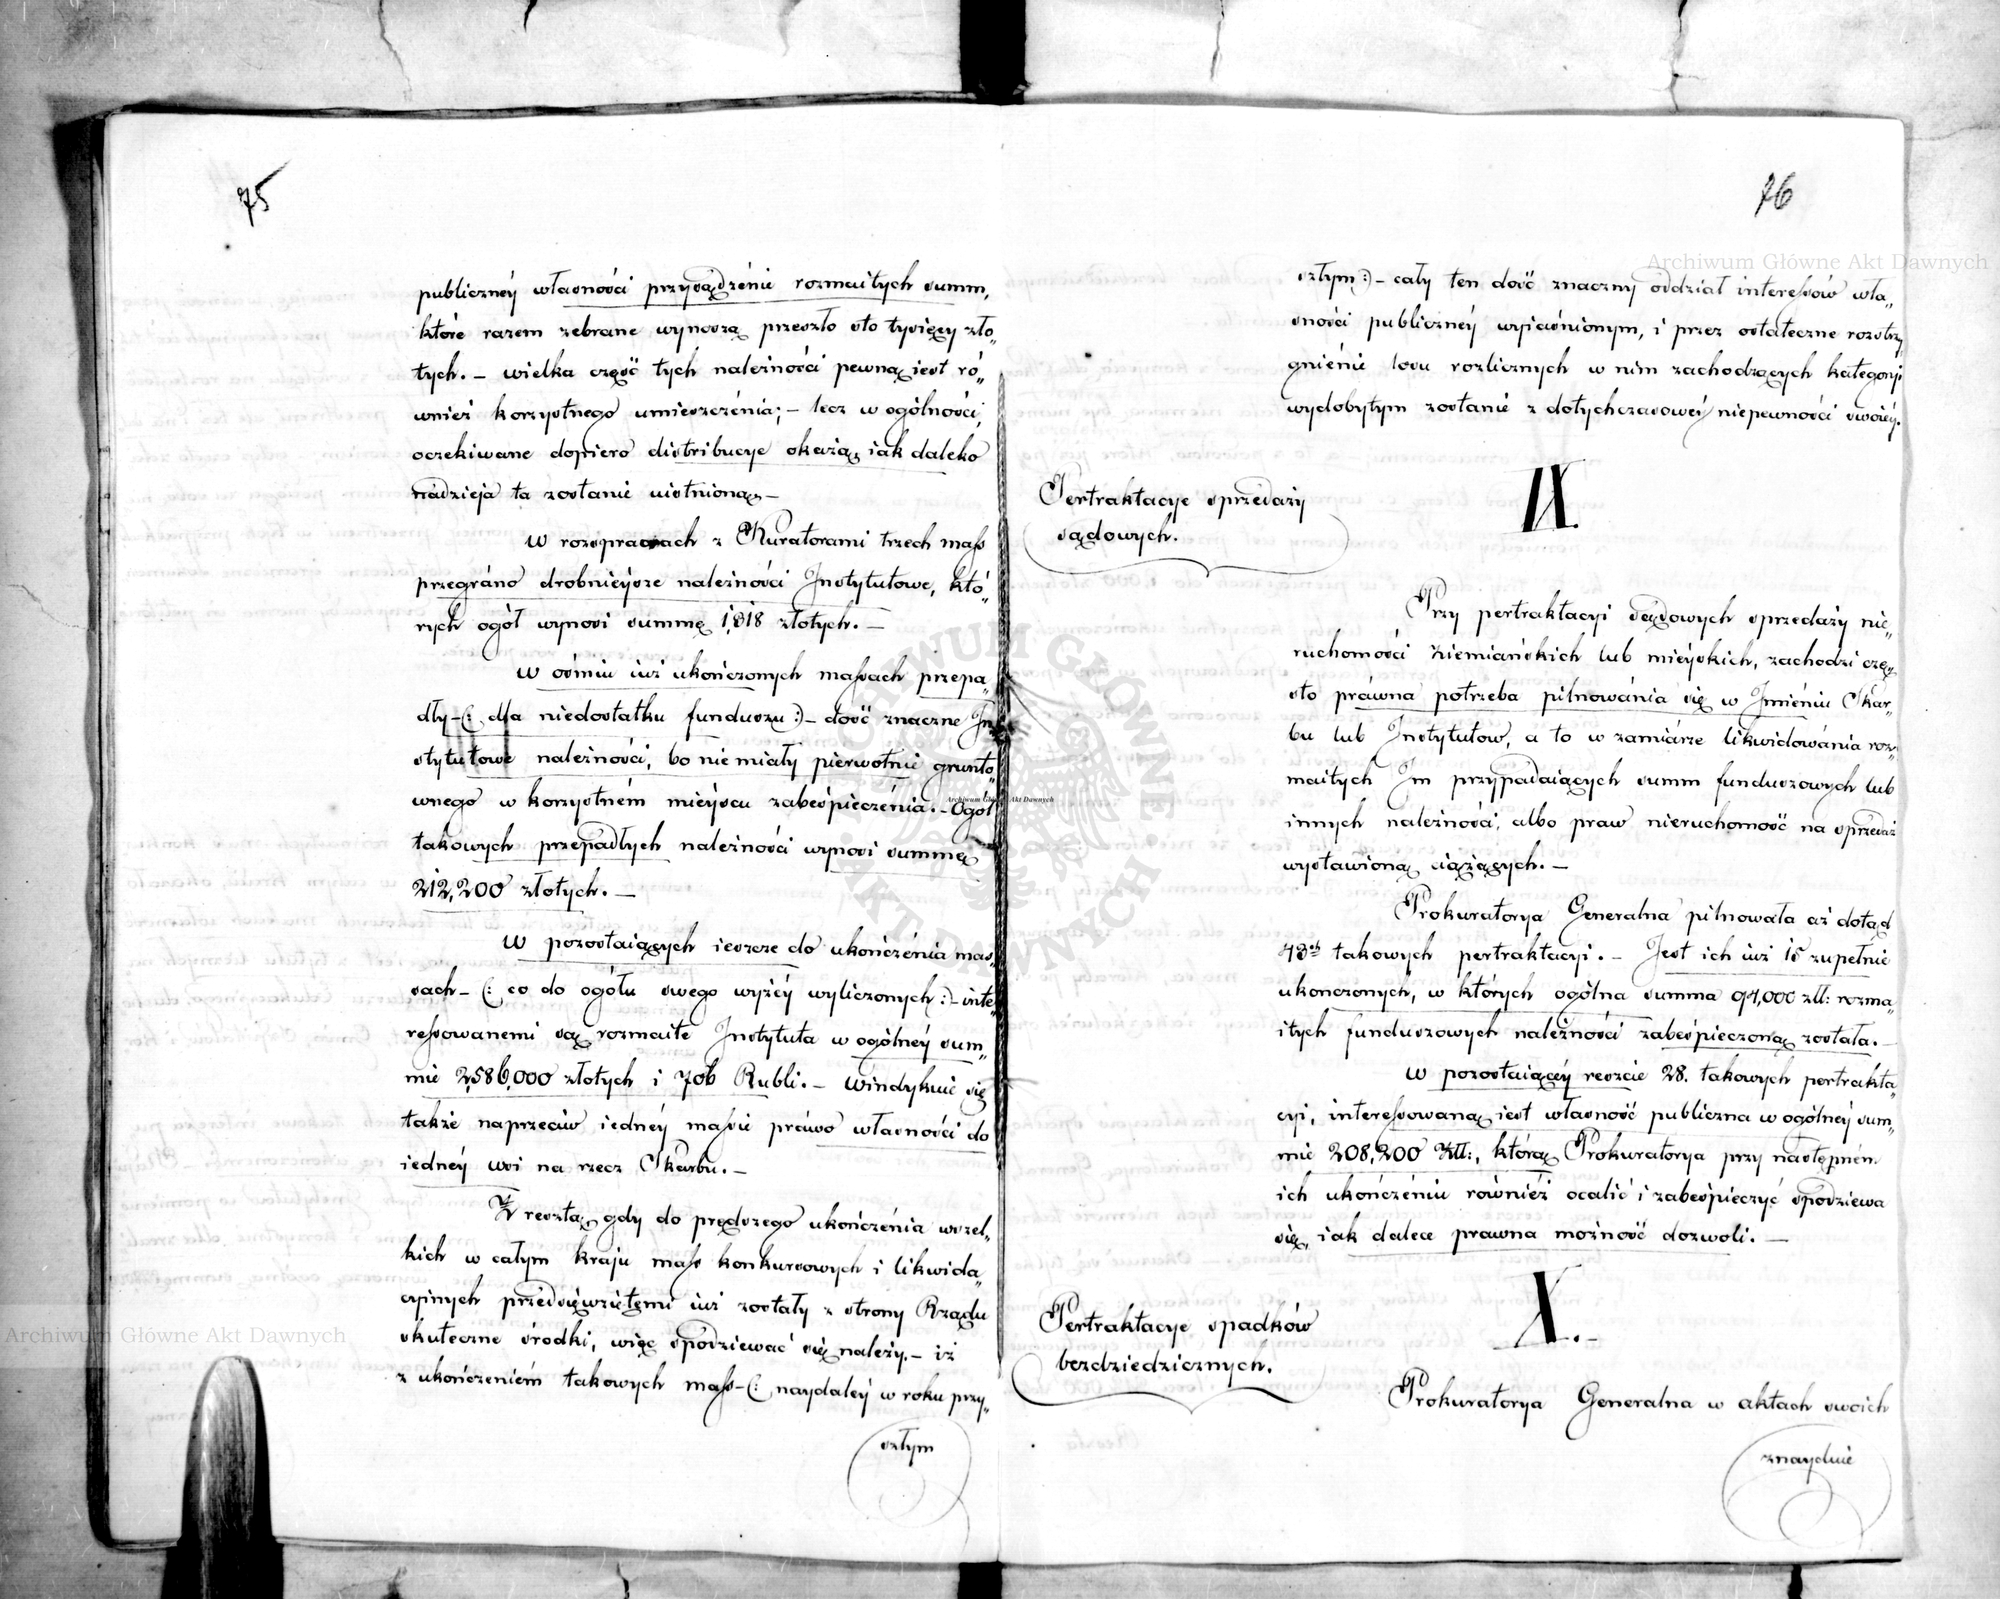 75
publicznéy własności przysądzénie rozmaitych summ,
które razem zebrane wynoszą przeszło sto tysięcy zło„
tych. – wielka część tych należności pewną iest ró„
wnież korzystnego umieszczénia; – lecz w ogólności,
oczekiwane dopiero distribucye okażą, iak daleko
nadzieja ta zostanie uistnioną. –
W rozsprawach z Kuratorami trzech mass
przegráno drobniéysze należności Instytutowe, któ„
rych ogół wynosi summę 1,818 złotych. –
W ośmiu iuż ukończonych massach przepa„
dły – (: dla niedostatku funduszu :) – dość znaczne In„
stytutowe należności, bo nie miały pierwotnie grunto„
wnego w korzystném miéyscu zabespieczénia. – Ogół
takowych przepadłych należności wynosi summę
212,200 złotych. –
W pozostaiących ieszcze do ukończénia mas„
sach – (: co do ogółu swego wyżéy wyliczonych :) – inte„
ressowanemi są rozmaite Instytuta w ogólnéy sum„
mie 2,586,000 złotych i 706 Rubli. – Windykuie się
także naprzeciw iednéy massie práwo własności do
iednéy wsi na rzecz Skarbu. –
Z resztą, gdy do prędszego ukończénia wszel„
kich w całym kraju mass konkursowych i likwida„
cyinych przedsięwziętemi iuż zostały z strony Rządu
skuteczne środki, więc spodziewać się należy. – iż
z ukończeniém takowych mass – (: naydaléy w roku przy„
szłym
76
szłym :) – cały ten dość znaczny oddział interessów wła„
sności publicznéy wyiaśnionym, i przez ostateczne rozstrzy„
gniénie losu rozlicznych w nim zachodzących kategoryi
wydobytym zostanie z dotychczasowéy niepewności swoiéy.
IX.
Pertraktacye sprzedaży
sądowych.
Przy pertraktacyi sądowych sprzedaży nie„
ruchomości ziemiańskich lub miéyskich, zachodzi czę„
sto práwna potrzeba pilnowánia się w Imiéniu Skar„
bu lub Instytutów, a to w zamiárze likwidowánia roz„
maitych Im przypadaiących summ funduszowych lub
innych należności, albo praw nieruchomość na sprzedaż
wystawioną ciążących. –
Prokuratorya Generalna pilnowała aż dotąd
43ch takowych pertraktacyi. – Jest ich iuż 15 zupełnie
ukonczonych, w których ogólna summa 94,000 zll: rozma„
itych funduszowych należności zabespieczoną została. –
W pozostaiącéy reszcie 28. takowych pertrakta„
cyi, interessowaną iest własność publiczna w ogólnéy sum„
mie 208,200 Zll:, którą Prokuratorya przy następném
ich ukończéniu również ocalić i zabespieczyć spodziewa
się, iak dalece prawna możność dozwoli. –
X. –
Pertraktacye spadków
bezdziedzicznych.
Prokuratorya Generalna w aktach swoich
znayduie
Archiwum Główne Akt Dawnych
Archiwum Główne Akt Dawnych
Archiwum Główne Akt Dawnych
ARCHIWUM GŁÓWNE • AKT DAWNYCH •